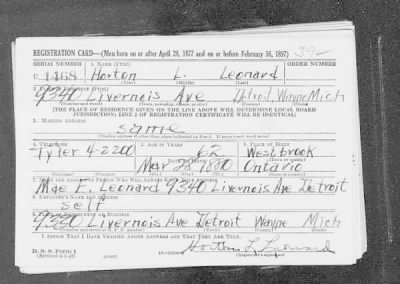 REGISTRATION CARD—(Men born on or after April 28, 1877 and on or before February 16, 1897)
SERIAL NUMBER 1. NAME (Print) ORDER NUMBER
U 1468 Horton L. Leonard
2. PLACE OF RESIDENCE (Print)
9340 Livernois Ave Detroit Wayne Mich
[THE PLACE OF RESIDENCE GIVEN ON THE LINE ABOVE WILL DETERMINE LOCAL BOARD
JURISDICTION; LINE 2 OF REGISTRATION CERTIFICATE WILL BE IDENTICAL]
3. MAILING ADDRESS
same
4. TELEPHONE 5. AGE IN YEARS 6. PLACE OF BIRTH
Tyler 4-2200 62 Westbrook
DATE OF BIRTH
Mar 28 1880 Ontario
7. NAME AND ADDRESS OF PERSON WHO WILL ALWAYS KNOW YOUR ADDRESS
Mae F. Leonard 9340 Livernois Ave Detroit
8. EMPLOYER'S NAME AND ADDRESS
self
9. PLACE OF EMPLOYMENT OR BUSINESS
9340 Livernois Ave Detroit Wayne Mich
I AFFIRM THAT I HAVE VERIFIED ABOVE ANSWERS AND THAT THEY ARE TRUE.
D. S. S. Form 1
(Revised 4-1-42)
Horton L Leonard